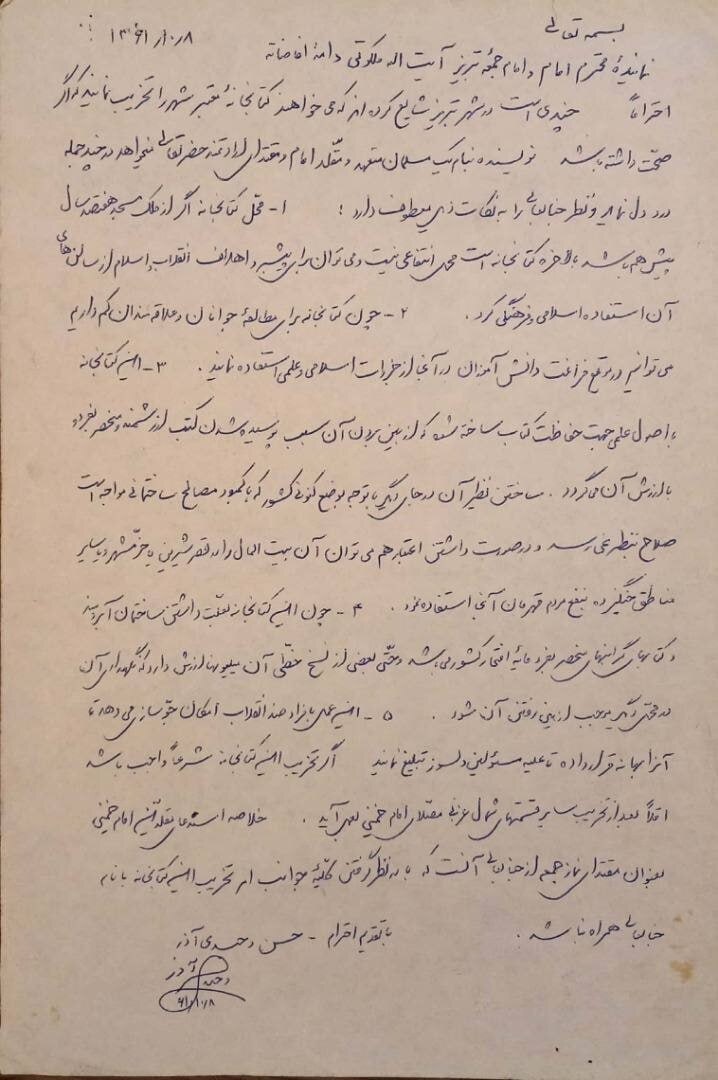 بسمه تعالی
۱۳۶۱/۱۰/۸
نمایندهٔ محترم امام و امام جمعهٔ تبریز آیت اله ملکوتی دامة افاضاته
احتراماً چندی است در شهر تبریز شایع کرده اند که می خواهند کتابخانهٔ معتبر شهر را تخریب نمایند که اگر
صحّت داشته باشد نویسنده بنام یک مسلمان متعهد و مقلّد امام و مقتدای ارادتمند حضرتعالی میخواهد در چند جمله
درد دل نماید و نظر جنابعالی را به نکات زیر معطوف دارد : ۱- محل کتابخانه اگر از ملک مسجد هفتصد سال
پیش هم باشد بالاخره کتابخانه است محل انتفاعی نیست و می توان برای پیشبرد اهداف انقلاب و اسلام از سالن های
آن استفاده اسلامی و فرهنگی کرد . ۲- چون کتابخانه برای مطالعهٔ جوانان و علاقه مندان کم داریم
می توانیم در موقع فراغت دانش آموزان در آنجا از جزوات اسلامی و علمی استفاده نمایند . ۳- این کتابخانه
با اصول علمی جهت حفاظت کتاب ساخته شده که از بین بردن آن سبب پوسیده شدن کتب ارزشمند و منحصر بفرد و
با ارزش آن می گردد . ساختن نظیر آن در جای دیگر با توجه بوضع کنونی کشور که با کمبود مصالح ساختمانی مواجه است
صلاح بنظر نمی رسد و در صورت داشتن اعتبار هم می توان آن بیت المال را در قصر شیرین یا خرّمشهر و یا سایر
مناطق جنگزده بنفع مردم قهرمان آنجا استفاده نمود . ۴- چون این کتابخانه بعلّت داشتن ساختمان آبرومند
و کتابهای گرانبهای منحصر بفرد مایهٔ افتخار کشور می باشد و حتّی بعضی از نسخ خطّی آن میلیونها ارزش دارد که نگهداری آن
در محل دیگر موجب از بین رفتن آن شود . ۵- این عمل بافراد ضد انقلاب امکان جوّسازی می دهد تا
آنرا بهانه قرار داده تا علیه مسئولین دلسوز تبلیغ نمایند اگر تخریب این کتابخانه شرعاً واجب باشد
اقلاً بعد از تخریب سایر قسمتهای شمال غربی مصلّای امام خمینی بعمل آید . خلاصه استدعای مقلّدین امام خمینی
بعنوان مقتدای نماز جمعه از جنابعالی آنست که با در نظر گرفتن کلیهٔ جوانب امر تخریب این کتابخانه با نام
جنابعالی همراه نباشد . با تقدیم احترام - حسن وحیدی آذر
وحیدی آذر
۶۱/۱۰/۸